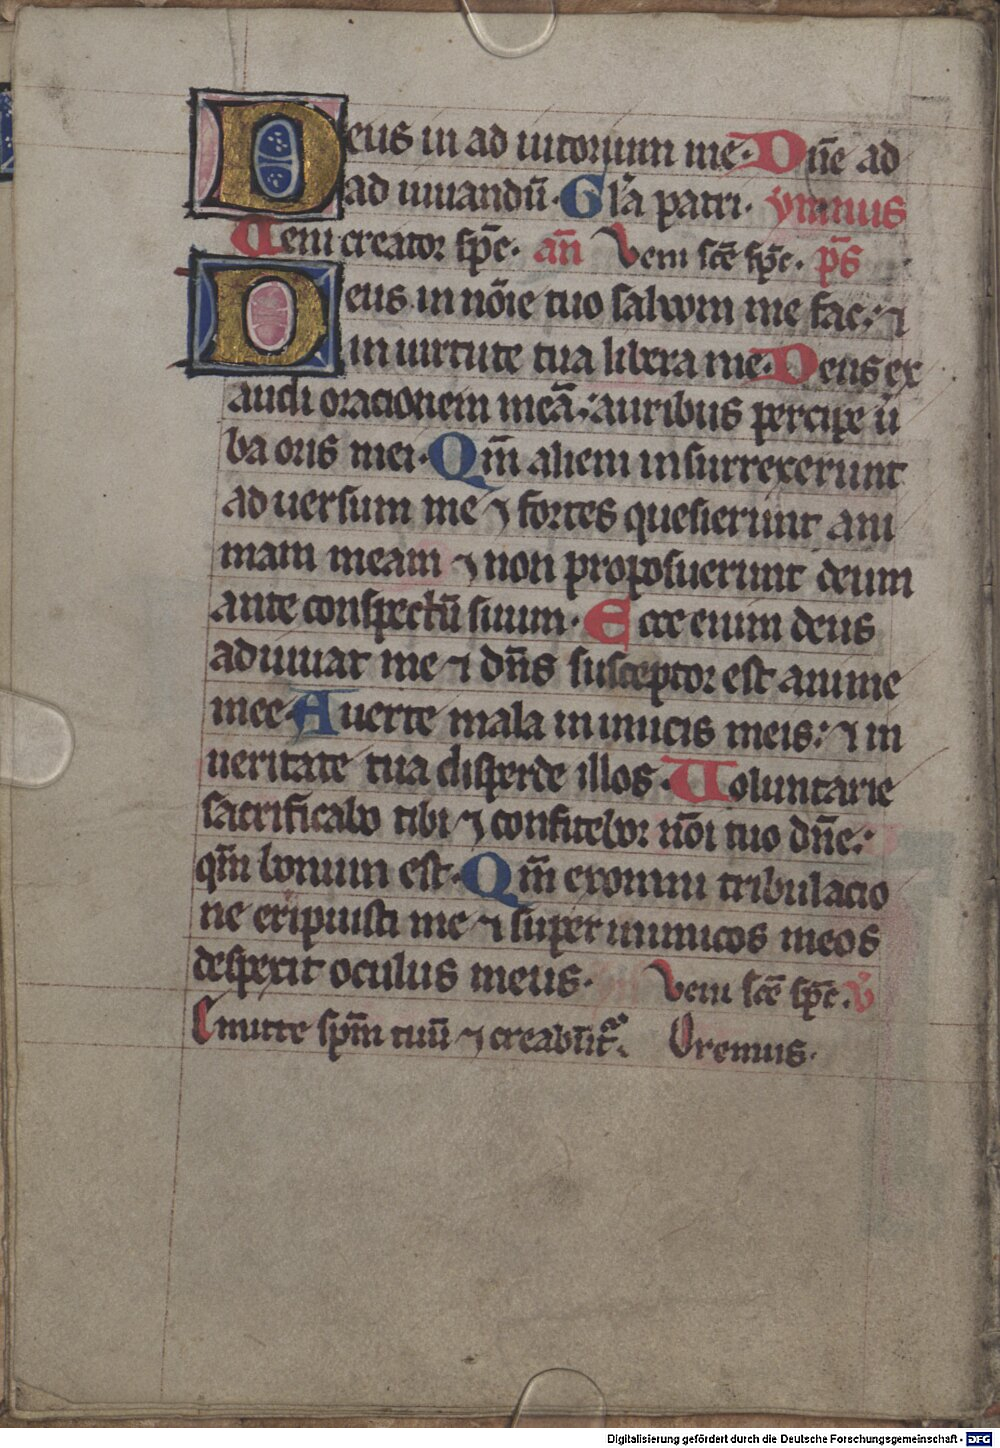 Deus in ad iutorium me. Dn̄e ad
ad iuuandū. Gl'a patri. ymnus
Ueni creator sp̄c. an̄ Veni sc̄e sp̄c. ps̄
Deus in nōie tuo saluum me fac: ⁊
in uirtute tua libera me. Deus ex
audi orationem meā: auribus percipe ū
ba oris mei. Qm̄ alieni insurrexerunt
aduersum me ⁊ fortes quesierunt ani
mam meam ⁊ non proposuerunt deum
ante conspectū suum. Ecce enim deus
adiuuat me ⁊ dn̄s susceptor est anime
mee. Auerte mala inimicis meis: ⁊ in
ueritate tua disperde illos. Uoluntarie
sacrificabo tibi ⁊ confitebor nōi tuo dn̄e:
qm̄ bonum est. Qm̄ ex omni tribulacio
ne eripuisti me ⁊ super inimicos meos
despexit oculus meus. Veni sc̄e sp̄c. v̄
Emitte sp̄m tuū ⁊ creabūt̄. Oremus.
Digitalisierung gefördert durch die Deutsche Forschungsgemeinschaft - DFG